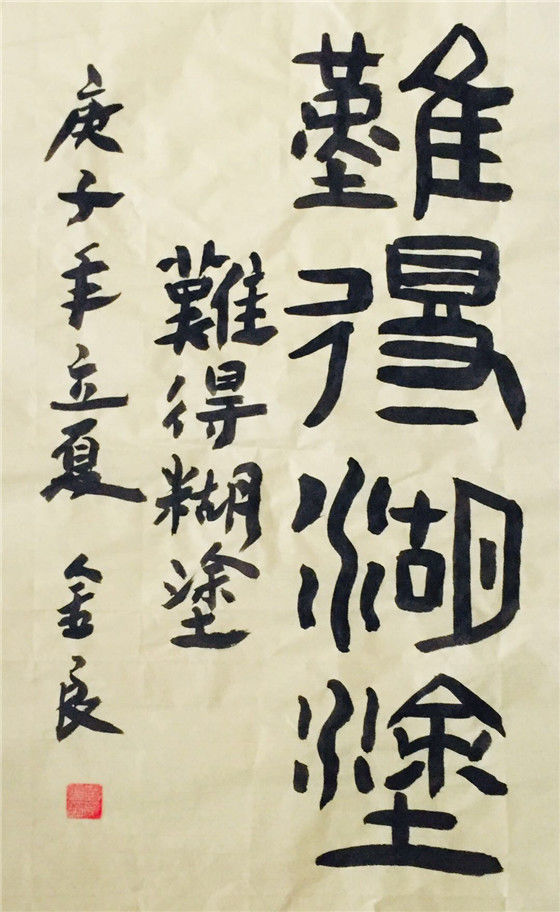 難得湖塗
難得糊塗
庚子年立夏 金良